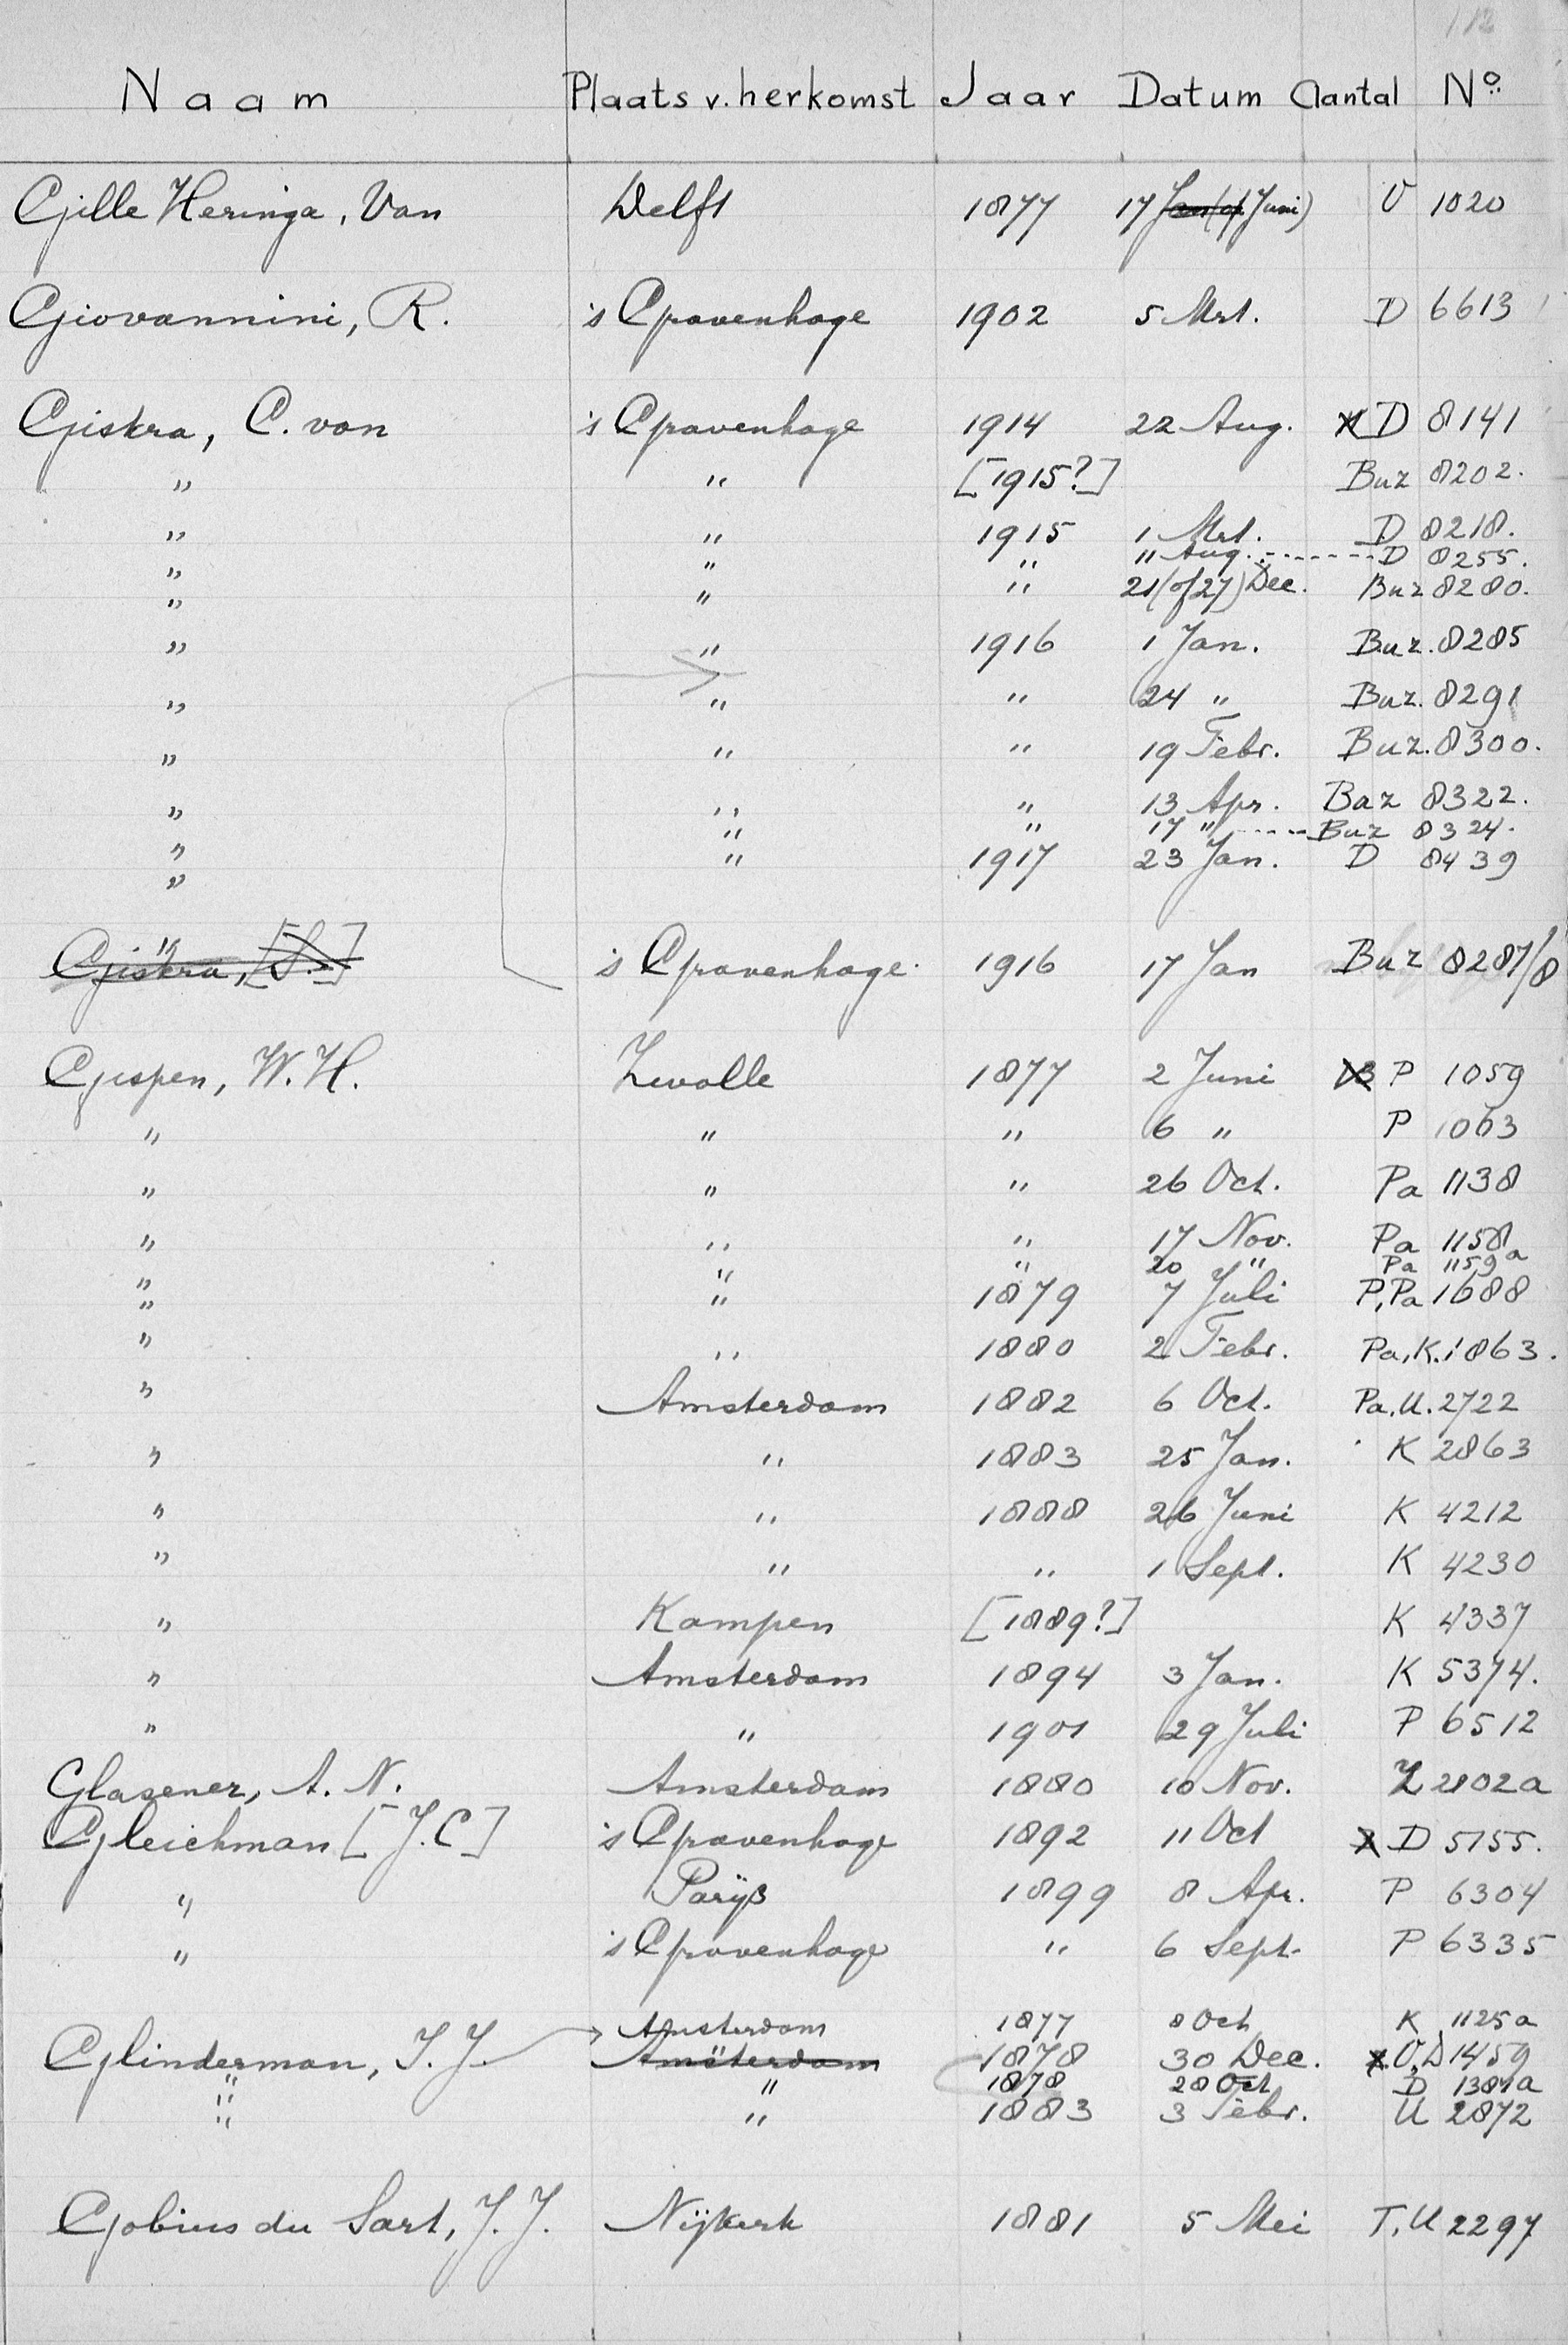 112
Naam Plaats v. herkomst Jaar Datum Aantal No.
Gille Heringa, Van Delft 1877 17 Jan (of Juni) V 1020
Giovannini, R. 's Gravenhage 1902 5 Mrt. D 6613
Giskra, C. von 's Gravenhage 1914 22 Aug. D 8141
" " [1915?] Buz 8202.
" " 1915 1 Mrt. D 8218.
" " " 11 Aug. -------- D 8255.
" " " 21 (of 27) Dec. Buz 8280.
" " 1916 1 Jan. Buz. 8285
" " " 24 " Buz. 8291
" " " 19 Febr. Buz. 8300.
" " " 13 Apr. Baz 8322.
" " " 17 " ---- Buz 8324.
" " 1917 23 Jan. D 8439
Giskra, [S.] " 's Gravenhage. 1916 17 Jan Buz 8287/8
Gispen, W. H. Zwolle 1877 2 Juni 13 P 1059
" " " 6 " P 1063
" " " 26 Oct. Pa 1138
" " " 17 Nov. Pa 1158
" " " 20 " Pa 1159a
" " 1879 7 Juli P, Pa 1688
" " 1880 2 Febr. Pa, K. 1863.
" Amsterdam 1882 6 Oct. Pa. U. 2722
" " 1883 25 Jan. K 2863
" " 1888 26 Juni K 4212
" " " 1 Sept. K 4230
" Kampen [1889?] K 4337
" Amsterdam 1894 3 Jan. K 5374.
" " 1901 29 Juli P 6512
Glasener, A. N. Amsterdam 1880 10 Nov. Z 2102a
Gleichman [J. C] 's Gravenhage 1892 11 Oct D 5155.
" Parijs 1899 8 Apr. P 6304
" 's Gravenhage " 6 Sept. P 6335
Amsterdam 1877 8 Oct K 1125a
Glinderman, J. J. Amsterdam 1878 30 Dec. V, D 1459
" " 1878 28 Oct D 1381a
" " 1883 3 Febr. U 2872
Gobius du Sart, J. J. Nijkerk 1881 5 Mei T. U 2297